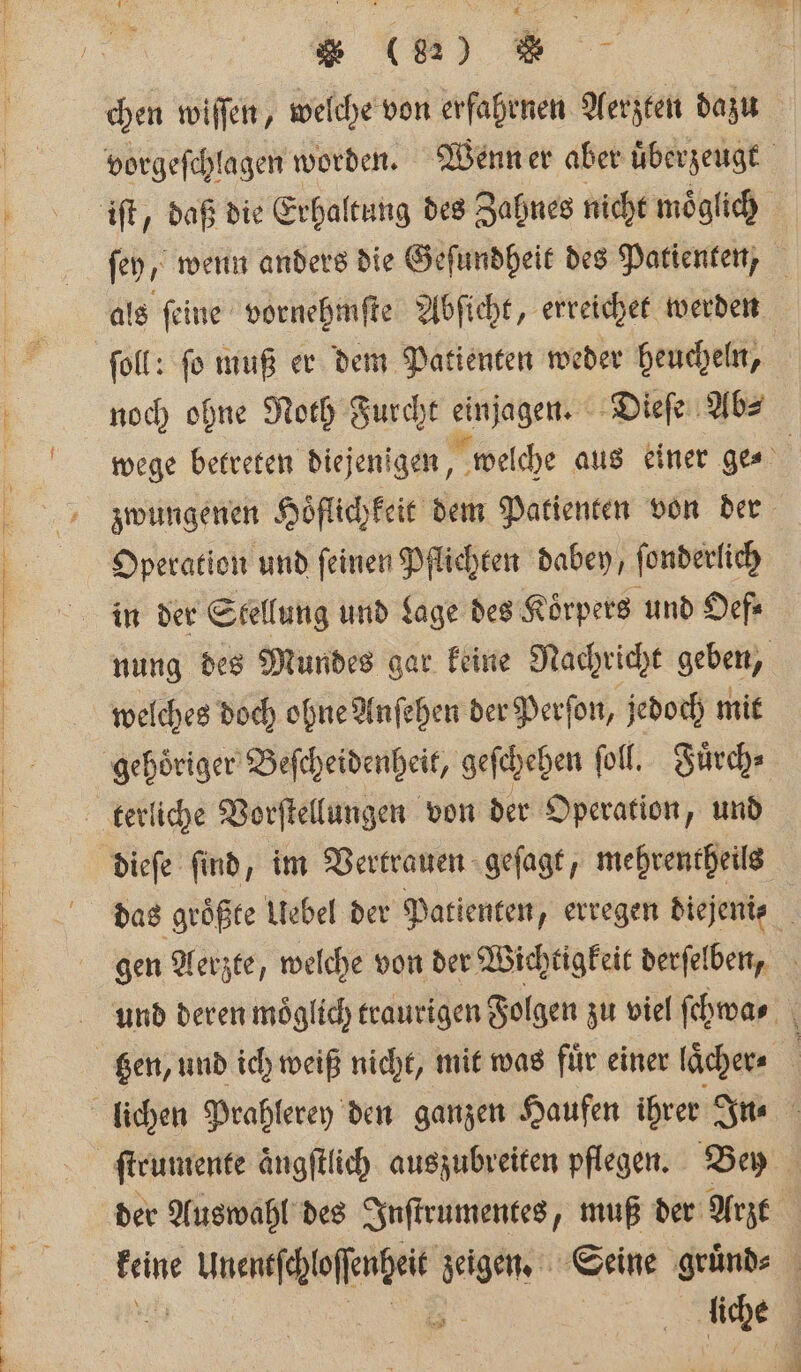 ❉ (82) ❉
chen wiſſen, welche von erfahrnen Aerzten dazu
vorgeſchlagen worden. Wenn er aber uͤberzeugt
iſt, daß die Erhaltung des Zahnes nicht moͤglich
ſey, wenn anders die Geſundheit des Patienten,
als ſeine vornehmſte Abſicht, erreichet werden
ſoll: ſo muß er dem Patienten weder heucheln,
noch ohne Noth Furcht einjagen. Dieſe Ab⸗
wege betreten diejenigen, welche aus einer ge⸗
zwungenen Hoͤflichkeit dem Patienten von der
Operation und ſeinen Pflichten dabey, ſonderlich
in der Stellung und Lage des Koͤrpers und Oef⸗
nung des Mundes gar keine Nachricht geben,
welches doch ohne Anſehen der Perſon, jedoch mit
gehoͤriger Beſcheidenheit, geſchehen ſoll. Fuͤrch⸗
terliche Vorſtellungen von der Operation, und
dieſe ſind, im Vertrauen geſagt, mehrentheils
das groͤßte Uebel der Patienten, erregen diejeni⸗
gen Aerzte, welche von der Wichtigkeit derſelben,
und deren moͤglich traurigen Folgen zu viel ſchwa⸗
tzen, und ich weiß nicht, mit was fuͤr einer laͤcher⸗
lichen Prahlerey den ganzen Haufen ihrer In⸗
ſtrumente aͤngſtlich auszubreiten pflegen. Bey
der Auswahl des Inſtrumentes, muß der Arzt
keine Unentſchloſſenheit zeigen. Seine gruͤnd⸗
liche